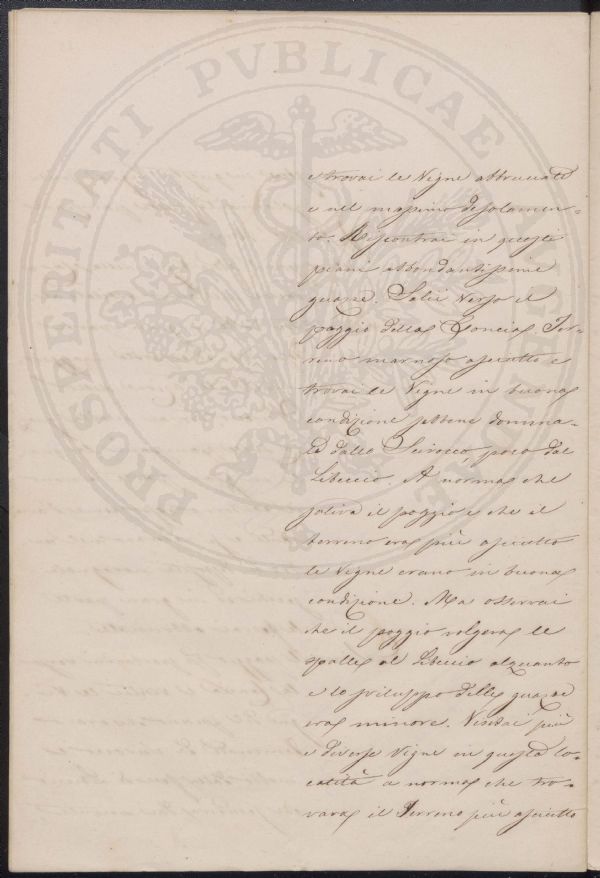 PROSPERITATI PVBLICAE AVGENDAE
e trovai le Vigne abbruciate
e nel massimo desolamen-
to. Riscontrai in queste
piani abbondantissime
guazze. Salii verso il
poggio della Concia, Ter-
reno marnoso asciutto e
trovai le Vigne in buona
condizione sebbene domina-
te dallo Scirocco, poco dal
Libeccio. A norma che
saliva il poggio e che il
terreno era più asciutto
le Vigne erano in buona
condizione. Ma osservai
che il poggio volgeva le
spalle al Libeccio alquanto
e lo sviluppo delle guazze
era minore. Visitai più
e diverse Vigne in questa lo-
calità a norma che tro-
vava il Terreno più asciutto